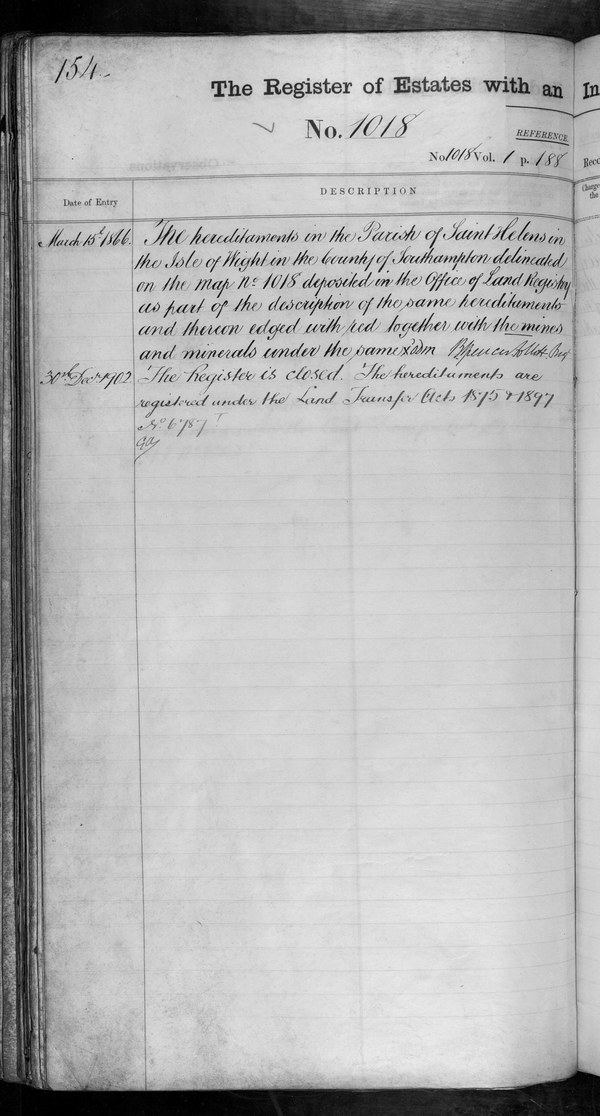 154
The Register of Estates with an In
No. 1018
REFERENCE
No 1018 Vol. 1 p. 188
Date of Entry
DESCRIPTION
March 15th 1866.
The hereditaments in the Parish of Saint Helens in
the Isle of Wight in the County of Southampton delineated
on the map No 1018 deposited in the Office of Land Registry
as part of the description of the same hereditaments
and thereon edged with red together with the mines
and minerals under the same
30th Decr 1902.
The Register is closed. The hereditaments are
registered under the Land Transfer Acts 1875 & 1897
No 6787